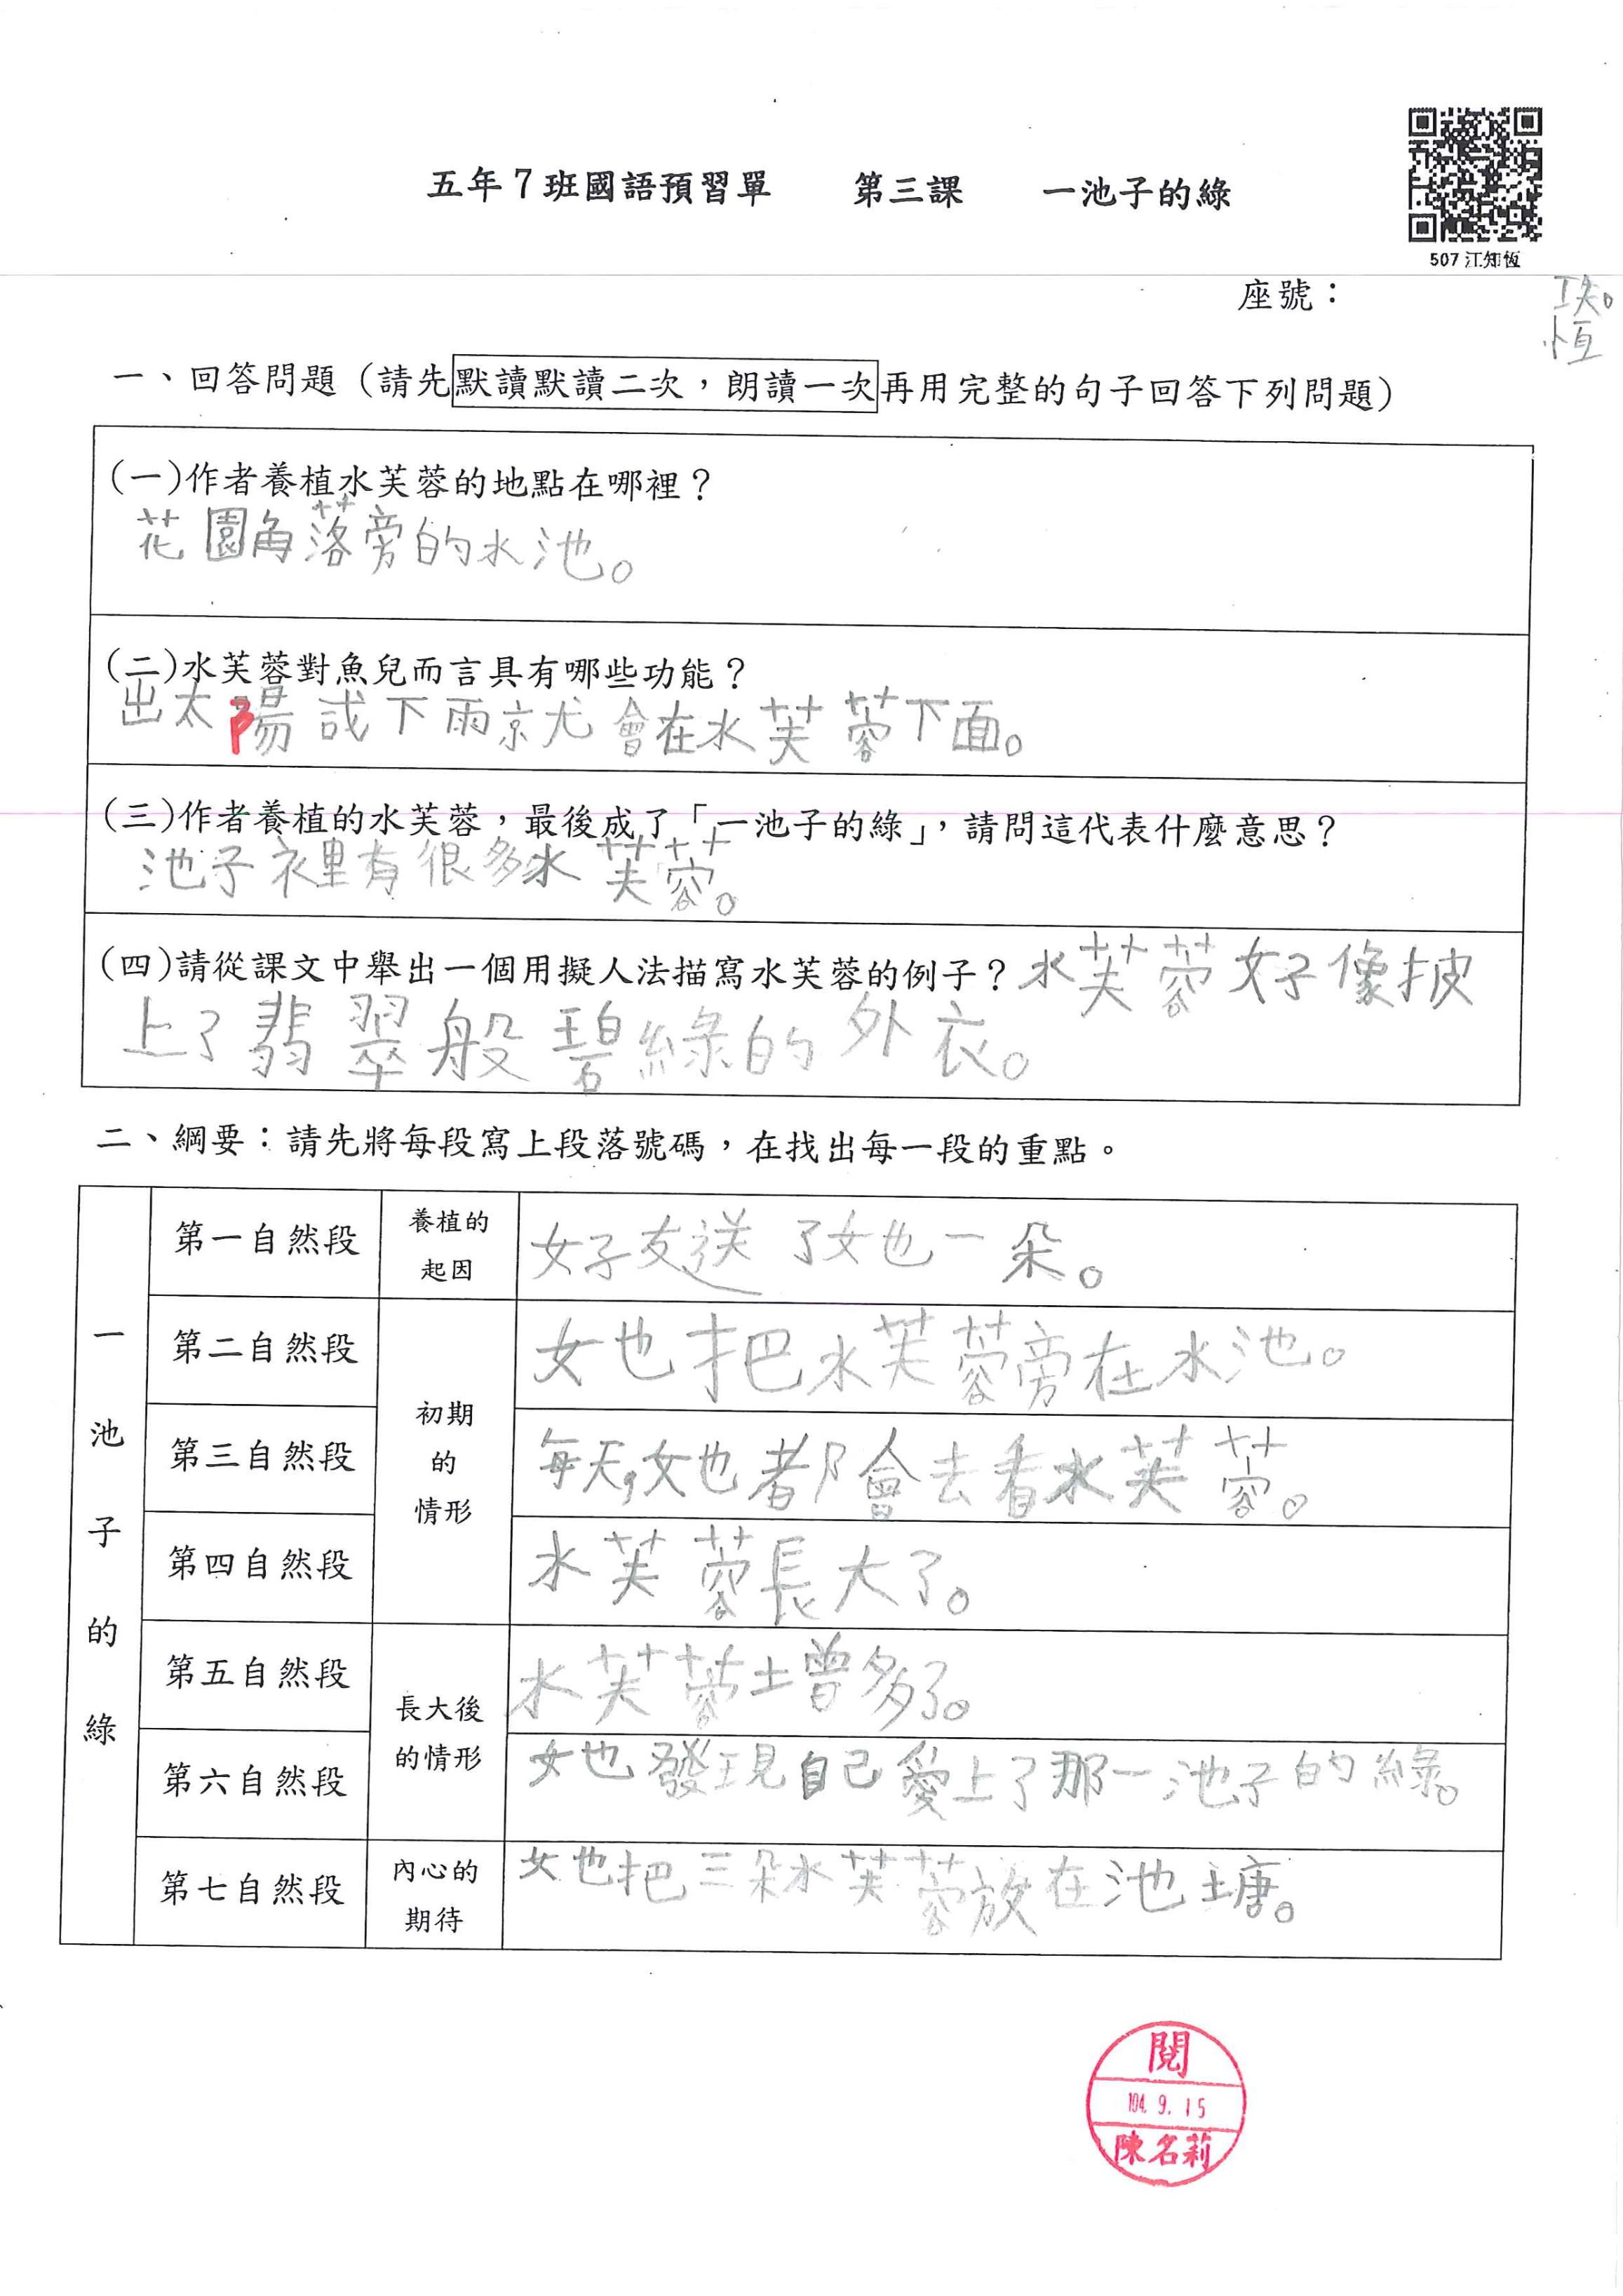 五年7班國語預習單 第三課 一池子的綠
507 江知恆
座號：
恆
一、回答問題（請先默讀默讀二次，朗讀一次再用完整的句子回答下列問題）
(一)作者養植水芙蓉的地點在哪裡？
花園角落旁的水池。
(二)水芙蓉對魚兒而言具有哪些功能？
出太陽或下雨就會在水芙蓉下面。
(三)作者養植的水芙蓉，最後成了「一池子的綠」，請問這代表什麼意思？
池子裡有很多水芙蓉。
(四)請從課文中舉出一個用擬人法描寫水芙蓉的例子？水芙蓉好像披
上了翡翠般碧綠的外衣。
二、綱要：請先將每段寫上段落號碼，在找出每一段的重點。
一池子的綠
第一自然段 養植的起因 好友送了她一朵。
第二自然段 初期的情形 她把水芙蓉旁在水池。
第三自然段 每天，她都會去看水芙蓉。
第四自然段 水芙蓉長大了。
第五自然段 長大後的情形 水芙蓉增多了。
第六自然段 她發現自己愛上了那一池子的綠。
第七自然段 內心的期待 她把三朵水芙蓉放在池塘。
閱
104. 9. 15
陳名莉